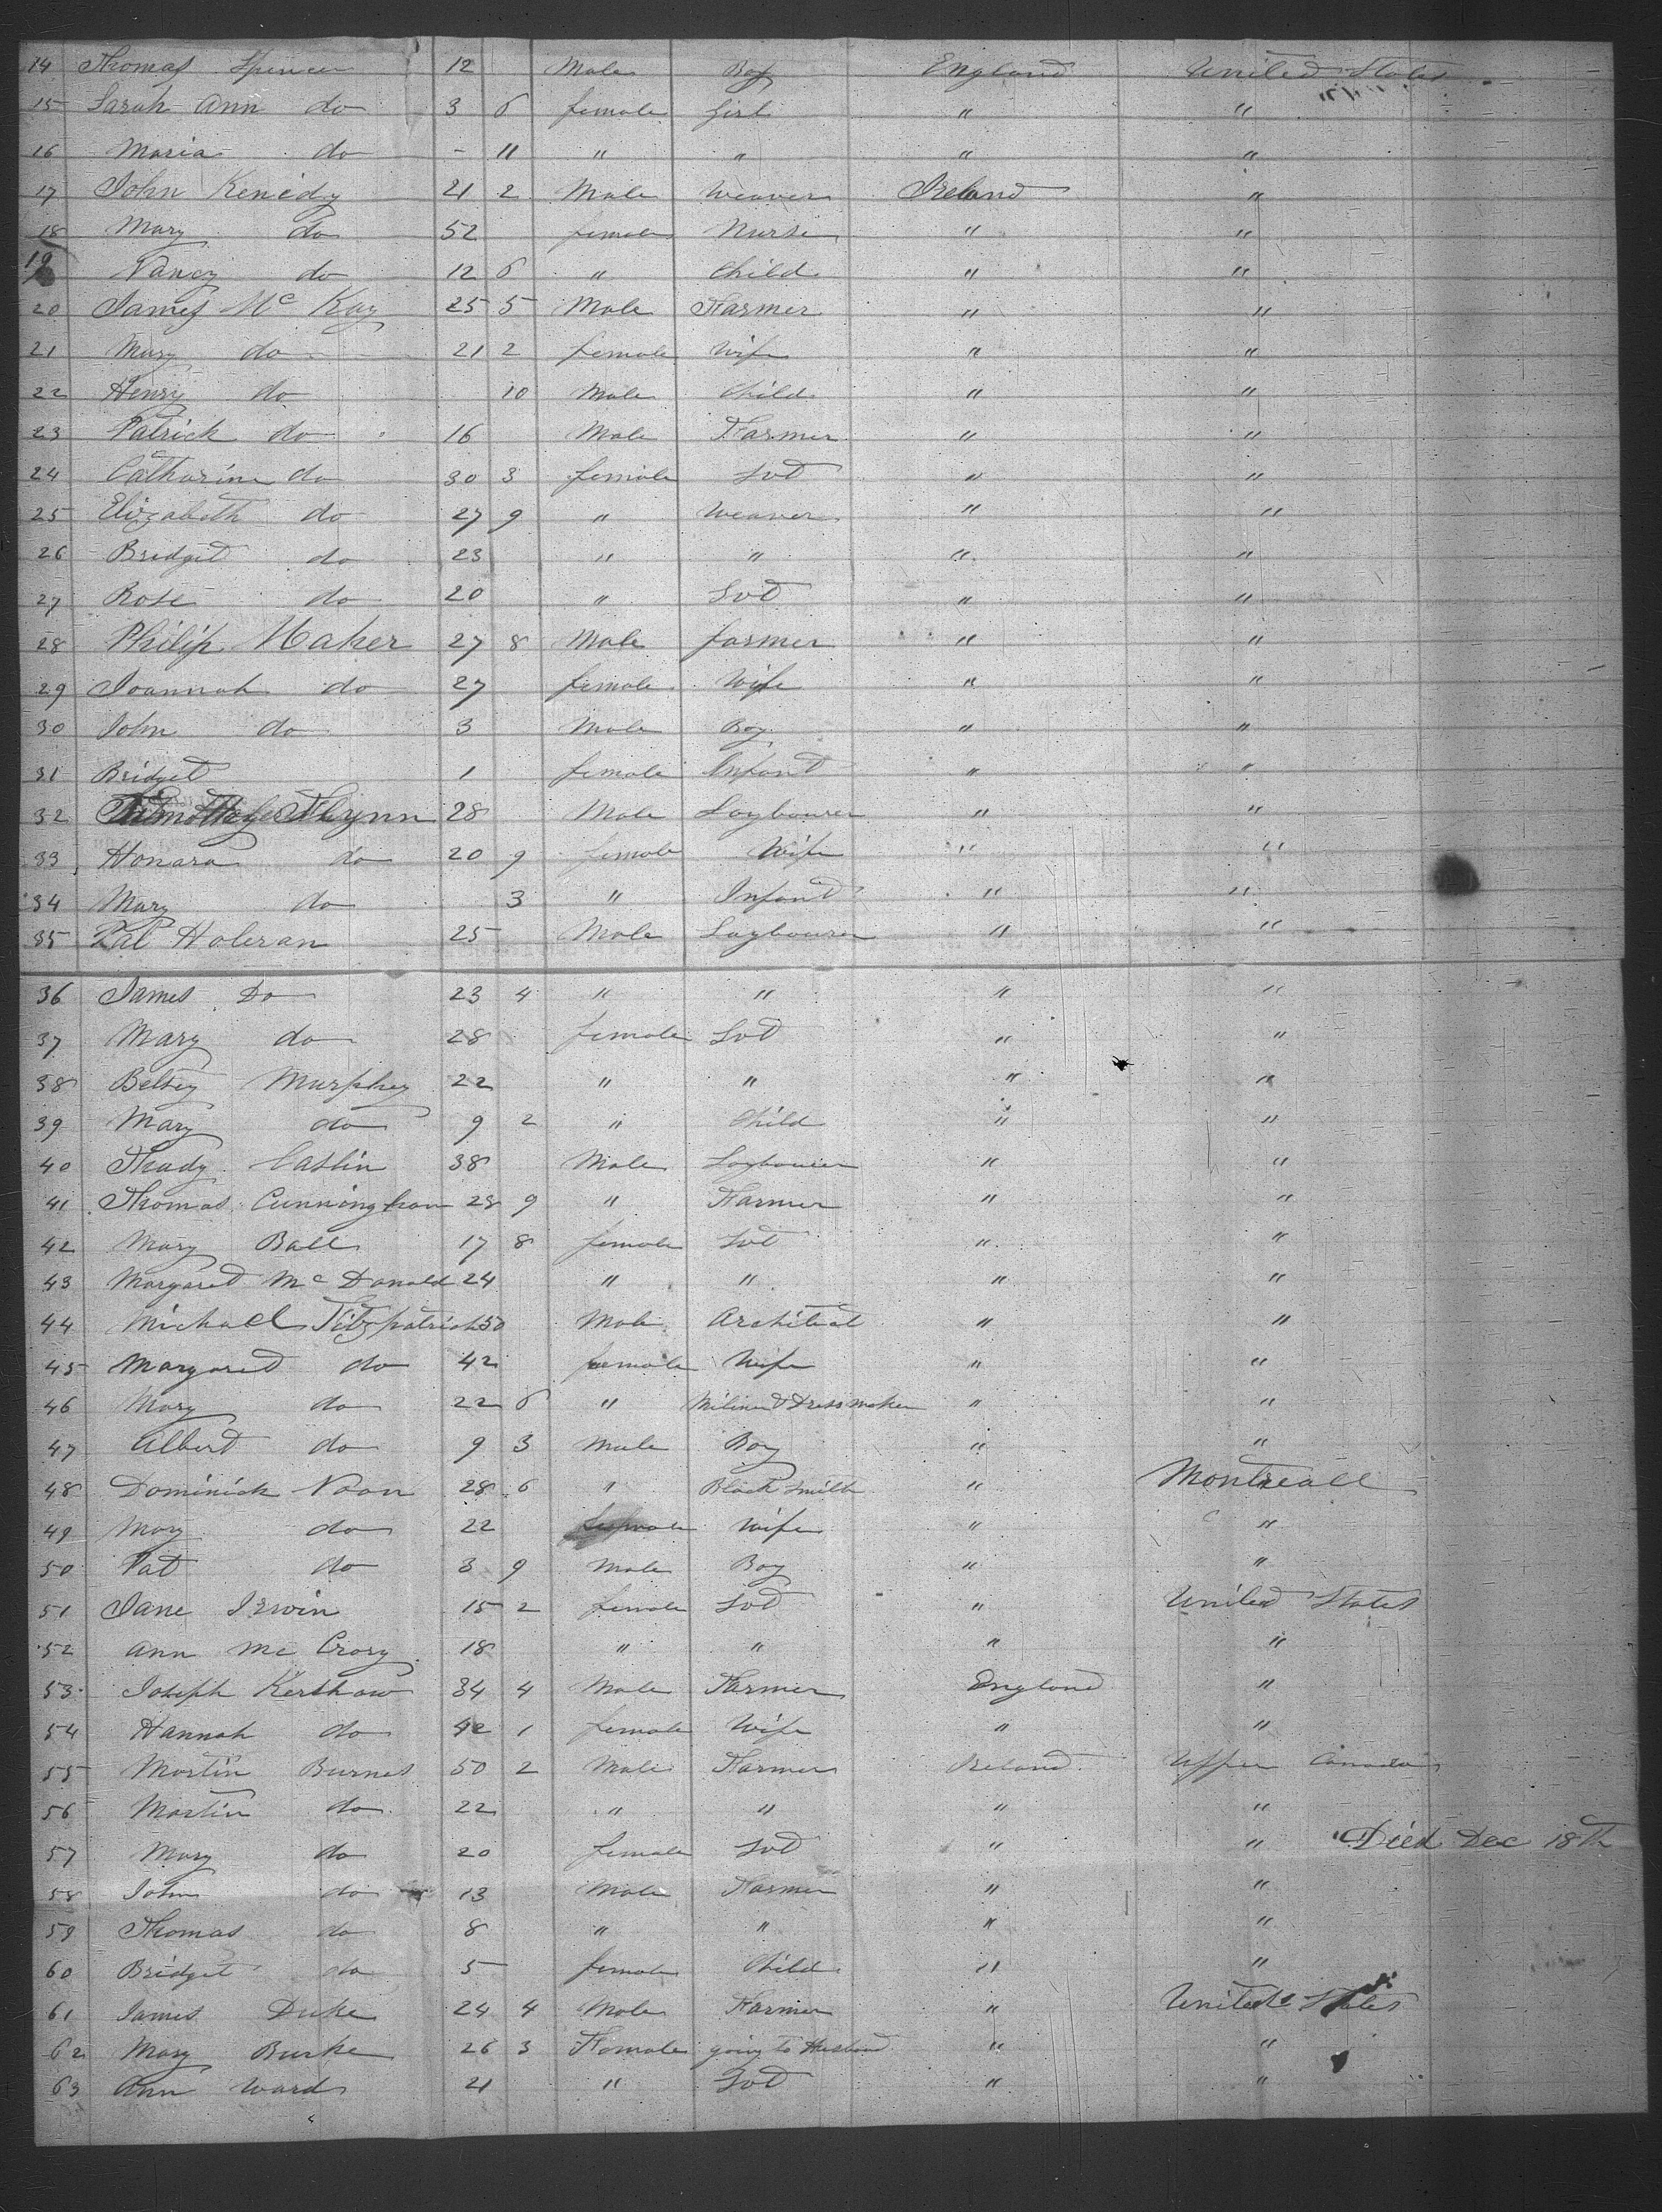 14 Thomas Spencer 12 Male Boy England United States
15 Sarah Ann do 3 6 female Girl " "
16 Maria do - 11 " " " "
17 John Kenedy 21 2 Male Weaver Ireland "
18 Mary do 52 female Nurse " "
19 Nancy do 12 6 " Child " "
20 James Mc Kay 25 5 Male Farmer " "
21 Mary do 21 2 female Wife " "
22 Henry do 10 Male Child " "
23 Patrick do 16 Male Farmer " "
24 Catharine do 30 3 female Svt " "
25 Elizabeth do 27 9 " Weaver " "
26 Bridget do 23 " " " "
27 Rose do 20 " Svt " "
28 Philip Maher 27 8 Male farmer " "
29 Joannah do 27 female Wife " "
30 John do 3 Male Boy " "
31 Bridget 1 female Infant " "
32 Flynn 28 Male Laybourer " "
33 Honara do 20 9 female Wife " "
34 Mary do 3 " Infant " "
35 Pat Holeran 25 Male Laybourer " "
36 James Do 23 4 " " " "
37 Mary do 28 female Svt " "
38 Betsey Murphey 22 " " " "
39 Mary do 9 2 " Child " "
40 Thady Caslin 38 Male Laybourer " "
41 Thomas Cunningham 28 9 " Farmer " "
42 Mary Ball 17 8 female Svt " "
43 Margaret Mc Donald 24 " " " "
44 Michael Fitzpatrick 50 Male Architect " "
45 Margaret do 42 female Wife " "
46 Mary do 22 6 " Miliner & Dress maker " "
47 Albert do 9 3 Male Boy " "
48 Dominick Noon 28 6 " Black Smith " Montreall
49 Mary do 22 female Wife " "
50 Pat do 3 9 Male Boy " "
51 Jane Irwin 15 2 female Svt " United States
52 Ann Mc Crory 18 " " " "
53 Joseph Kershaw 34 4 Male Farmer England "
54 Hannah do 42 1 female Wife " "
55 Martin Burnes 50 2 Male Farmer Ireland Upper Canada
56 Martin do 22 " " " "
57 Mary do 20 female Svt " " Died Dec 18th
58 John do 13 Male Farmer " "
59 Thomas do 8 " " " "
60 Bridget do 5 female Child " "
61 James Duke 24 4 Male Farmer " United States
62 Mary Burke 26 3 Female going to Husband " "
63 Ann Ward 21 " Svt " "